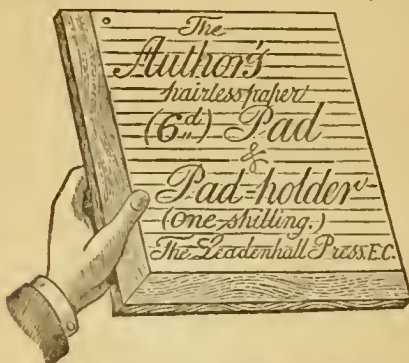 The
Author's
hairless paper
(6d.) Pad
&
Pad-holder
(One shilling.)
The Leadenhall Press, E.C.